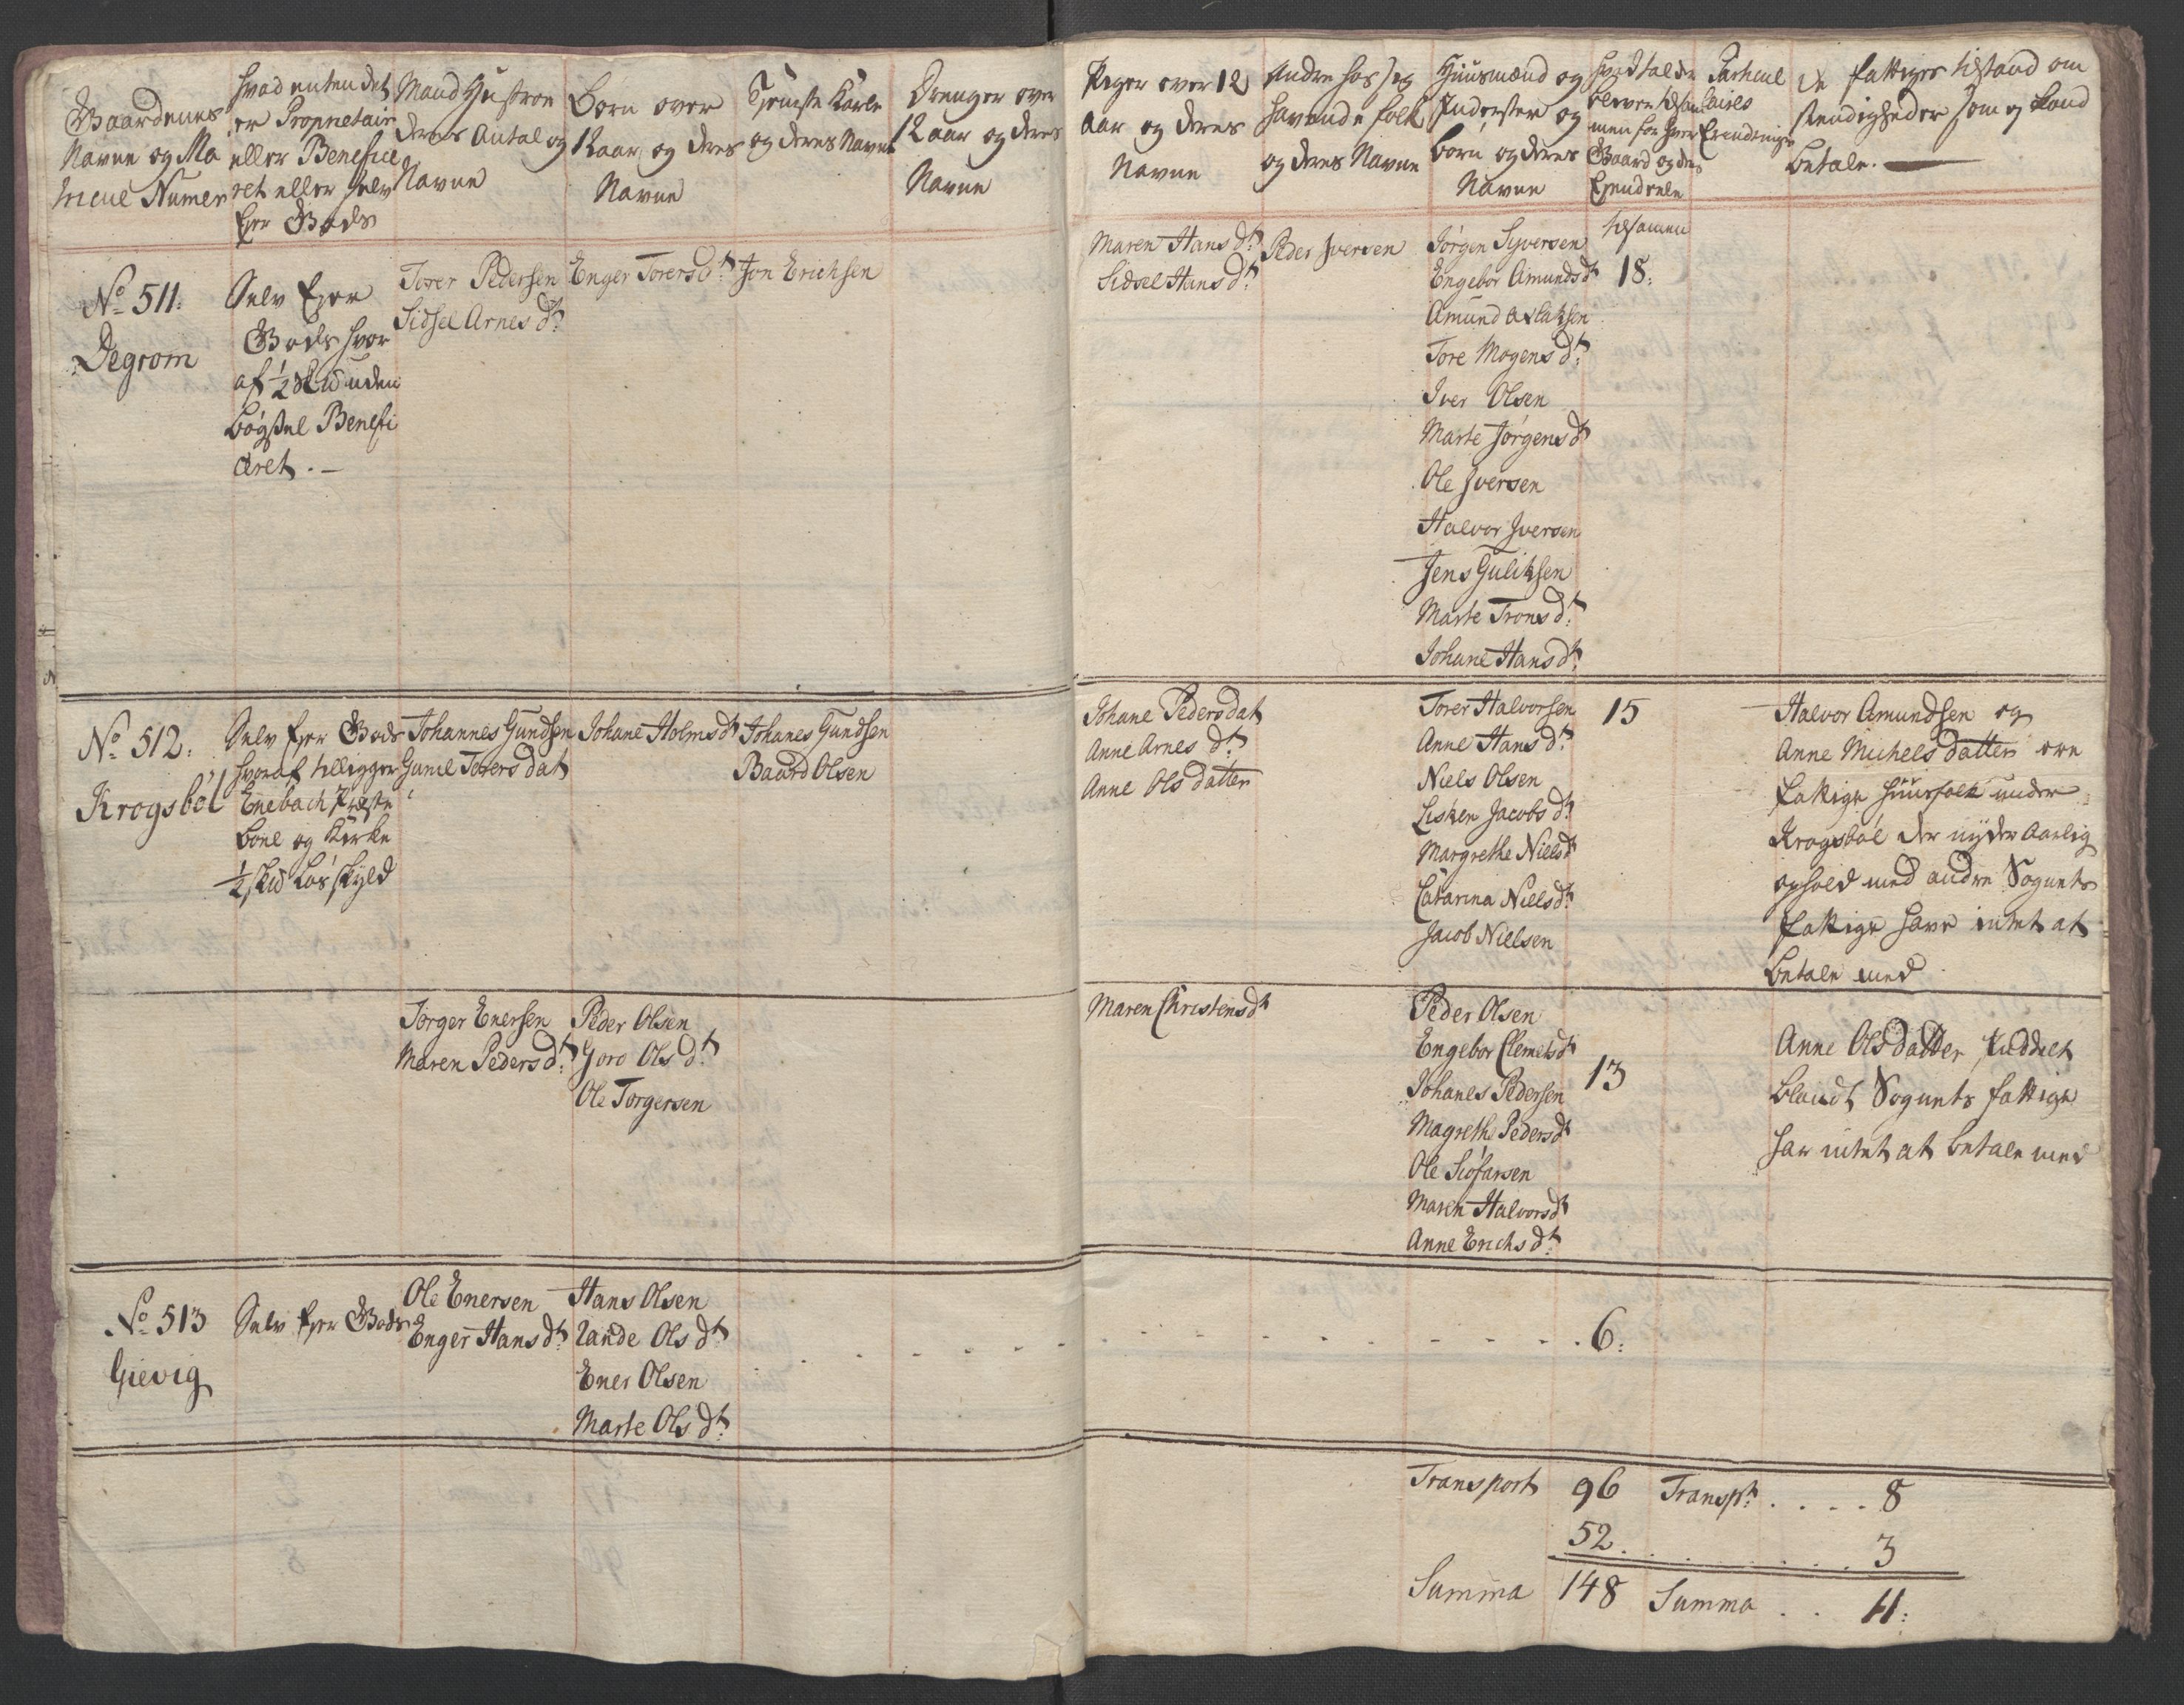 Gaardenes
Navne og Ma
tricul Numer
hvad enten det
er Proprietair
eller Benefice
ret eller Selv
Ejer Gods
Mand Hustroe
deres Antal og
Navne
Børn over
12 aar og deres
Navne
Tjeneste Karle
og deres Navne
Drenger over
12 aar og deres
Navne
Piger over 12
aar og deres
Navne
Andre hos sig
havende folk
og deres Navne
Huusmænd og
Inderster og
børn og deres
Navne
hvad tal der
bliver tilsam
men for hver
Gaard og des
Ejendeele
tilsamen
Particul
laires
Erindringer
De fattiges tilstand om
stendigheder som og kand
betale.
No 511:
Degrom
Selv Ejer
Gods hvor
af ½ Skd uden
bøgsel Benefi
ceret.
Torer Pedersen
Sidsel Arnes dt:
Enger Torersdt:
Jon Erichsen
Maren Hans dt:
Sidsel Hans dt:
Peder Iversen
Jørgen Syversen
Engebor Amunds dt
Amund Aslaksen
Tore Mogens dt:
Iver Olsen
Marte Jørgens dt
Ole Iversen
Halvor Iversen
Jens Guliksen
Marte Trons dt:
Johane Hans dt:
18:
No 512:
Krogsbøl
Selv Ejer Gods
hvoraf tilligger
Enebach Præste
boel og Kirke
½ Skd Løs skyld
Johannes Gundsen
Gunil Torers dat
Johane Holms dt
Johanes Gundsen
Baard Olsen
Johane Pedersdat
Anne Arnes dt:
Anne Ols datter
Torer Halvorsen
Anne Hans dt:
Niels Olsen
Lisken Jacobs dt
Margrethe Niels dt
Catarina Niels dt:
Jacob Nielsen
15
Halvor Amundsen og
Anne Michels datter ere
fattige huusfolk under
Krogsbøl der nyder aarlig
ophold med andre Sognets
fattige have intet at
betale med
Torger Enersen
Maren Peders dt:
Peder Olsen
Goro Ols dt:
Ole Torgersen
Maren Christens dt
Peder Olsen
Engebor Clemets dt
Johanes Pedersen
Magrethe Peders dt
Ole Siøfarsen
Maren Halvors dt
Anne Erichs dt:
13
Anne Ols datter
blandt Sognets fattige
har intet at betale med
No 513
Gievig
Selv Ejer Gods
Ole Enersen
Enger Hans dt:
Hans Olsen
Rande Ols dt
Ener Olsen
Marte Ols dt:
6:
Transport 96 Transpt. . . . . 8
52. . . . . . . . . 3
Summa 148 Summa . . 11: